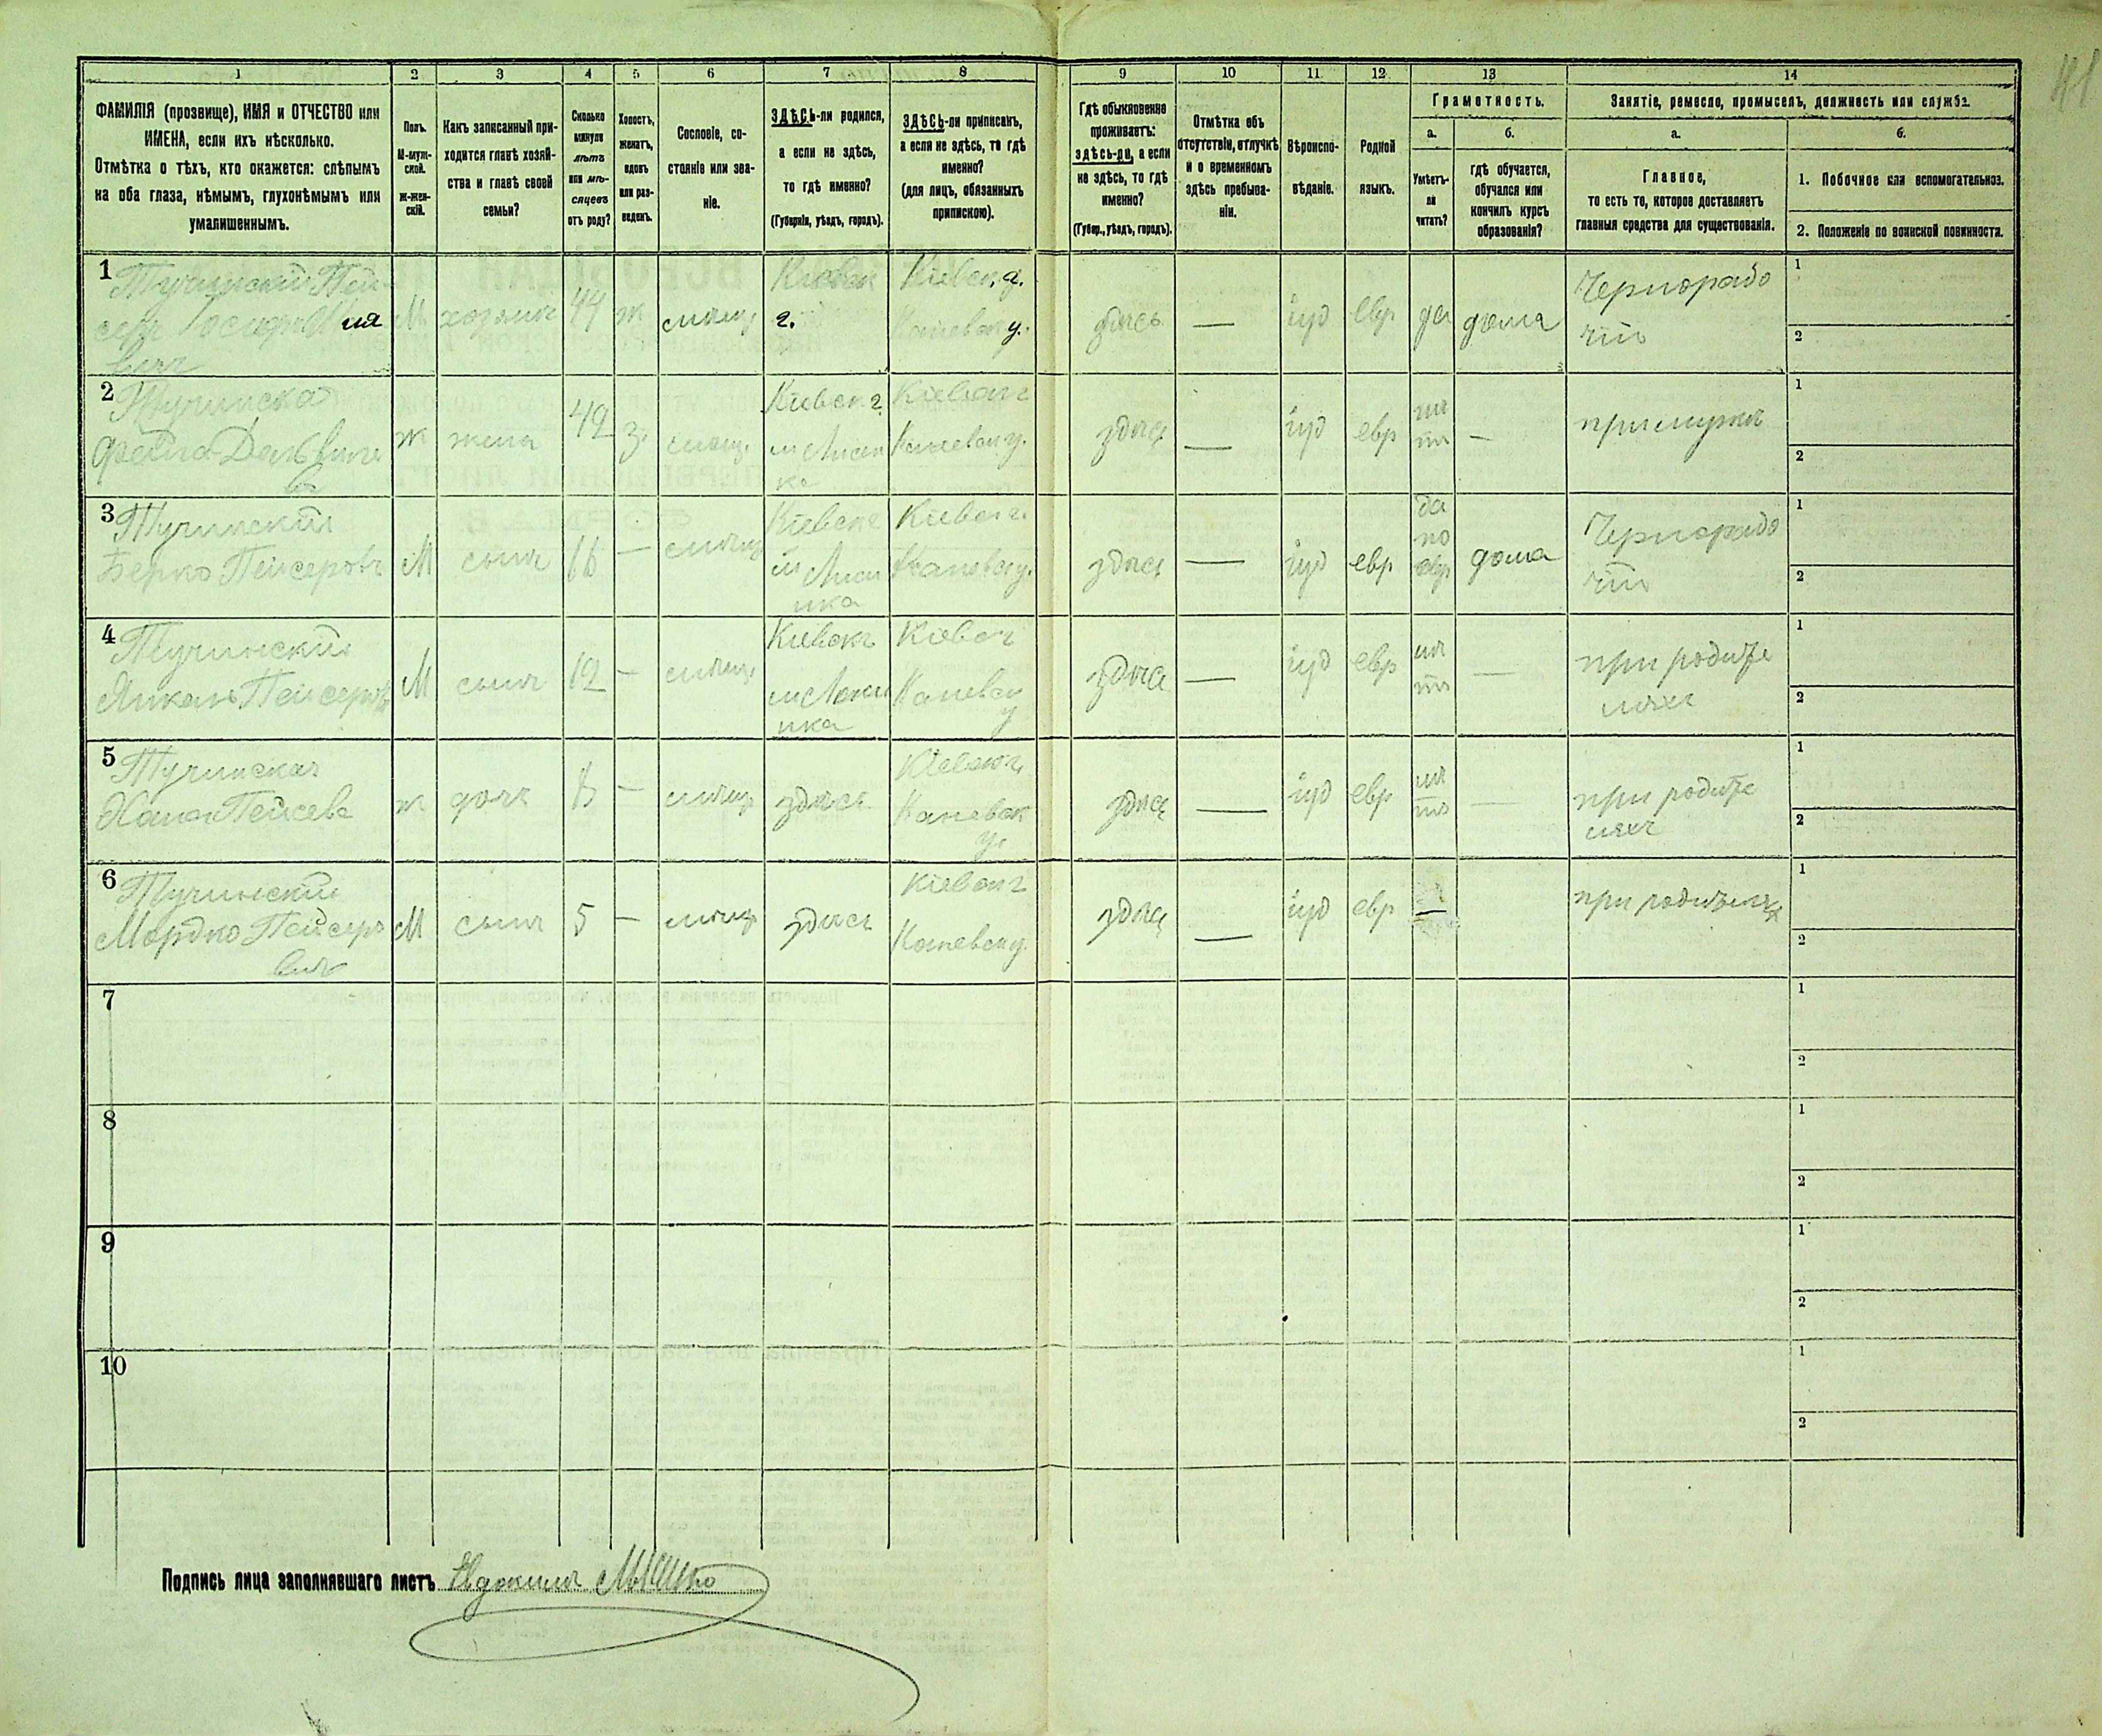 41
1 2 3 4 5 6 7 8 9 10 11 12 13 14
ФАМИЛІЯ (прозвище), ИМЯ и ОТЧЕСТВО или
ИМЕНА, если ихъ нѣсколько.
Отмѣтка о тѣхъ, кто окажется: слѣпымъ
на оба глаза, нѣмымъ, глухонѣмымъ или
умалишеннымъ.
Полъ.
М-муж-
ской.
Ж-жен-
скій.
Какъ записанный при-
ходится главѣ хозяй-
ства и главѣ своей
семьи?
Сколько
минуло
лѣтъ
или мѣ-
сяцевъ
отъ роду?
Холостъ,
женатъ,
вдовъ
или раз-
веденъ.
Сословіе, со-
стояніе или зва-
ніе.
ЗДѢСЬ-ли родился,
а если не здѣсь,
то гдѣ именно?
(Губернія, уѣздъ, городъ).
ЗДѢСЬ-ли приписанъ,
а если не здѣсь, то гдѣ
именно?
(для лицъ, обязанныхъ
припискою).
Гдѣ обыкновенно
проживаетъ:
здѣсь-ли, а если
не здѣсь, то гдѣ
именно?
(Губер., уѣздъ, городъ).
Отмѣтка объ
отсутствіи, отлучкѣ
и о временномъ
здѣсь пребыва-
ніи.
Вѣроиспо-
вѣданіе.
Родной
языкъ.
Грамотность.
а.
Умѣетъ-
ли
читать?
б.
гдѣ обучается,
обучался или
кончилъ курсъ
образованія?
Занятіе, ремесло, промыселъ, должность или служба.
а.
Главное,
то есть то, которое доставляетъ
главныя средства для существованія.
б.
1. Побочное или вспомогательное.
2. Положеніе по воинской повинности.
1 Тучинскій Пей
М хозяинъ 44 ж
г. Каневск у.
здѣсь — іуд евр да дома Чернорабо
чій
1
2
2 Тучинска
ж жена 42 з. Кіевск г Кіевск г
Каневск у.
здѣсь — іуд евр нѣ
тъ — при мужѣ
1
2
3 Тучинскій
Берко Пейсеровъ М сынъ 16 — Кіевск г Кіевск г.
Каневск у.
здѣсь — іуд евр да
по
евр дома Чернорабо
чій
1
2
4 Тучинскій
Пейсеровъ М сынъ 12 — Кіевск г Кіевск г
Каневск
у
здѣсь — іуд евр нѣ
тъ — при родите
ляхъ
1
2
5 Тучинская
Хана Пейсева ж дочь 8 — здѣсь Кіевск г.
Каневск
у.
здѣсь — іуд евр нѣ
тъ — при родите
ляхъ
1
2
6 Тучинскій
Мордко Пейсеро
вичъ
М сынъ 5 — здѣсь Кіевск г
Каневск у.
здѣсь — іуд евр — при родителях
1
2
7
1
2
8
1
2
9
1
2
10
1
2
Подпись лица заполнявшаго листъ